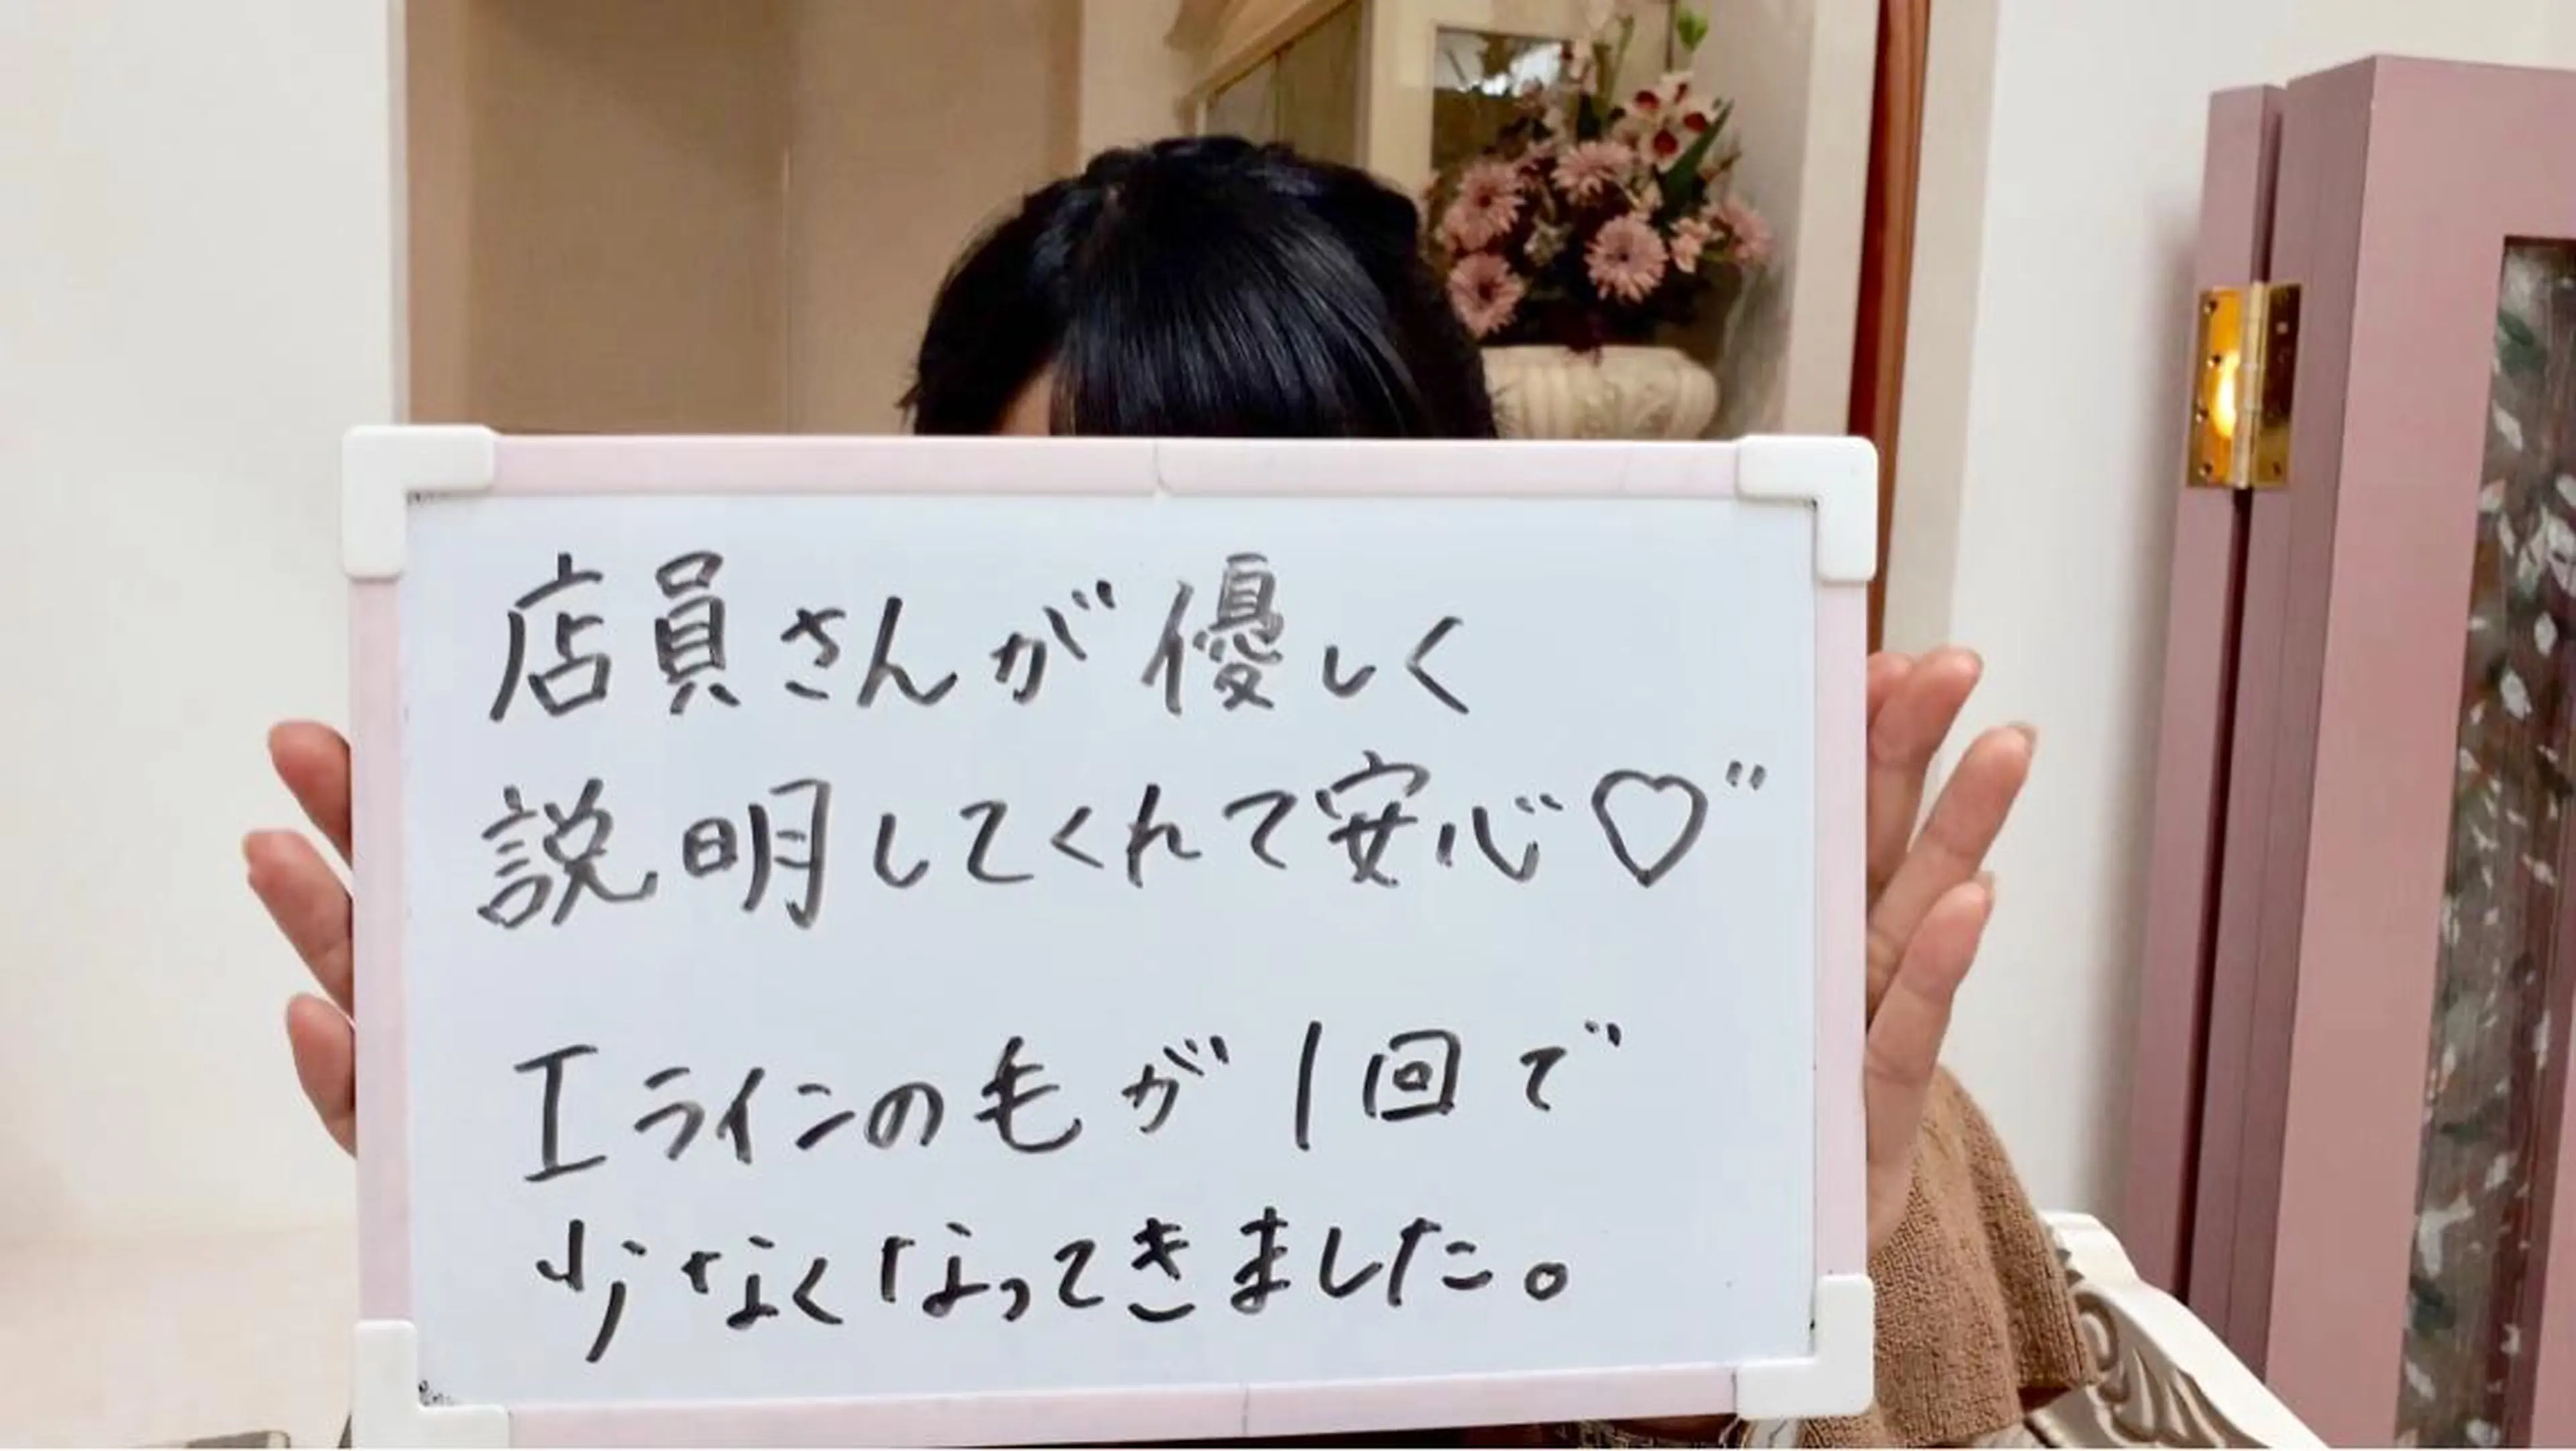 店員さんが優しく
説明してくれて安心♡"
Iラインの毛が1回で
少なくなってきました。